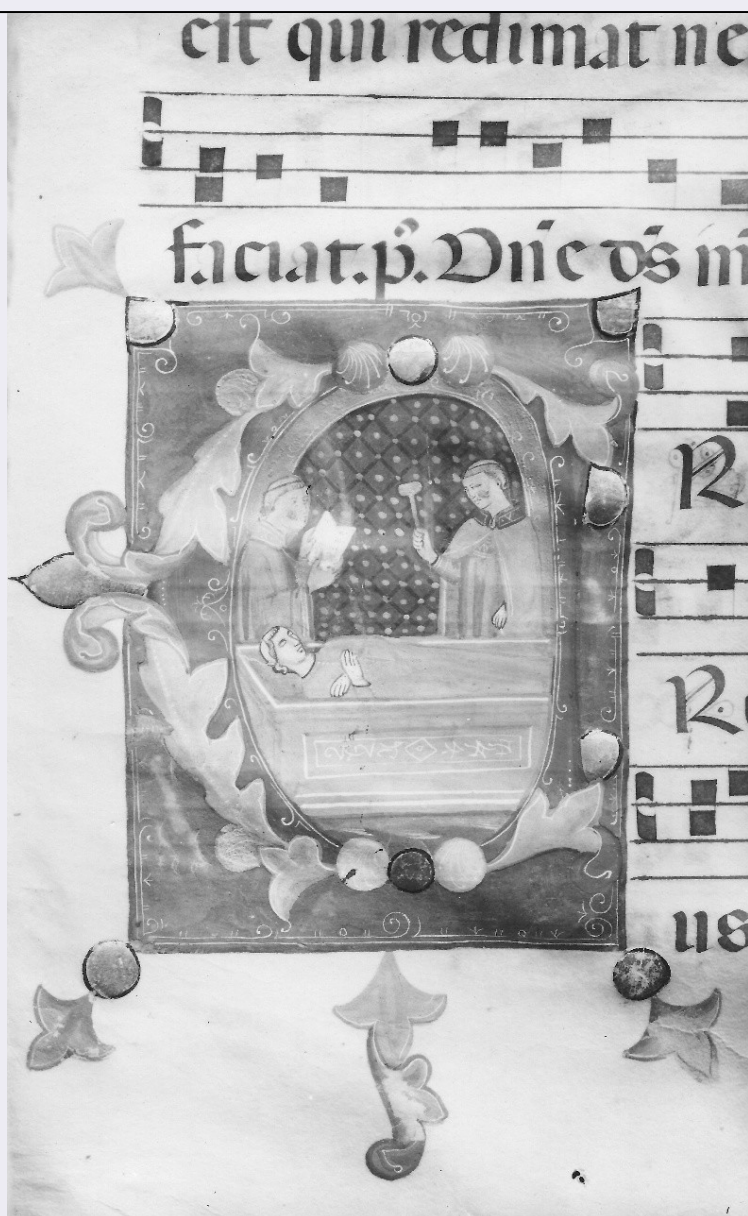 est qui redimat ne
faciat. p̃. Dn̄e ds̄ m
R
R
us